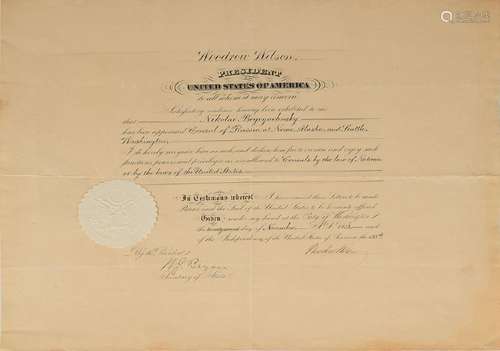 Woodrow Wilson
PRESIDENT
UNITED STATES OF AMERICA
to all whom it may concern
Satisfactory evidence having been exhibited to me
that Nikolai
has been appointed Consul of Russia at Nome, Alaska, and Seattle,
Washington,
I do hereby recognize him as such and declare him free to exercise and enjoy such
functions, powers and privileges as are allowed to Consuls by the law of Nations
or by the laws of the United States
In Testimony whereof I have caused these Letters to be made
Patent and the Seal of the United States to be hereunto affixed
Given under my hand at the City of Washington the
day of November A.D. 1913 and
of the Independence of the United States of America the
By the President
Woodrow Wilson
W. J. Bryan
Secretary of State